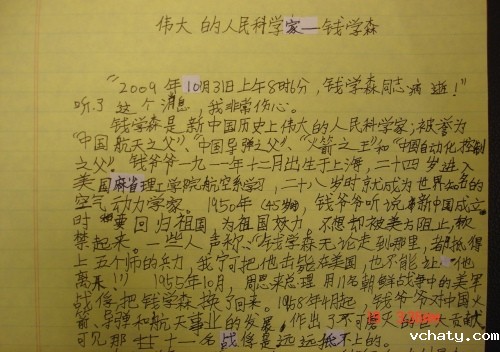 伟大的人民科学家—钱学森
"2009年10月31日上午8时6分,钱学森同志病逝!"
听了这个消息,我非常伤心。
钱学森是新中国历史上伟大的人民科学家,被誉为
"中国航天之父"、"中国导弹之父"、"火箭之王"和"中国自动化控制
之父"。钱爷爷一九一一年十二月出生于上海,二十四岁进入
美国麻省理工学院航空系学习,二十八岁时就成为世界知名的
空气动力学家。1950年(45岁),钱爷爷听说新中国成立
时 要回归祖国为祖国效力,不想却被美方阻止,被
禁起来。一些人声称:"钱学森无论走到哪里,都抵得
上五个师的兵力,我宁可把他击毙在美国,也不能让他
离来!"1955年10月,周恩来总理用11名朝鲜战争中的美军
战俘把钱学森换了回来。1958年4月起,钱爷爷对中国火
箭、导弹和航天事业的发展,作出了不可磨灭的巨大贡献
可见那十一名战俘是远远抵不上的。
vchaty.com